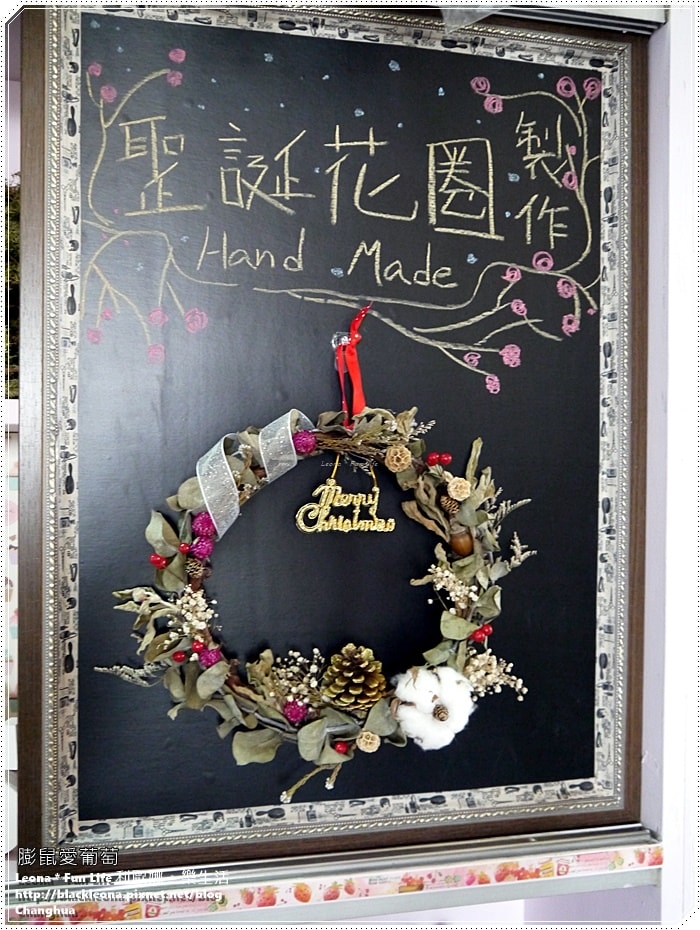 聖誕花圈製作
Hand Made
Leona * Fun Life
Merry
Christmas
膨鼠愛葡萄
Leona * Fun Life 樂生活
http://blackleona.pixnet.net/blog
Changhua